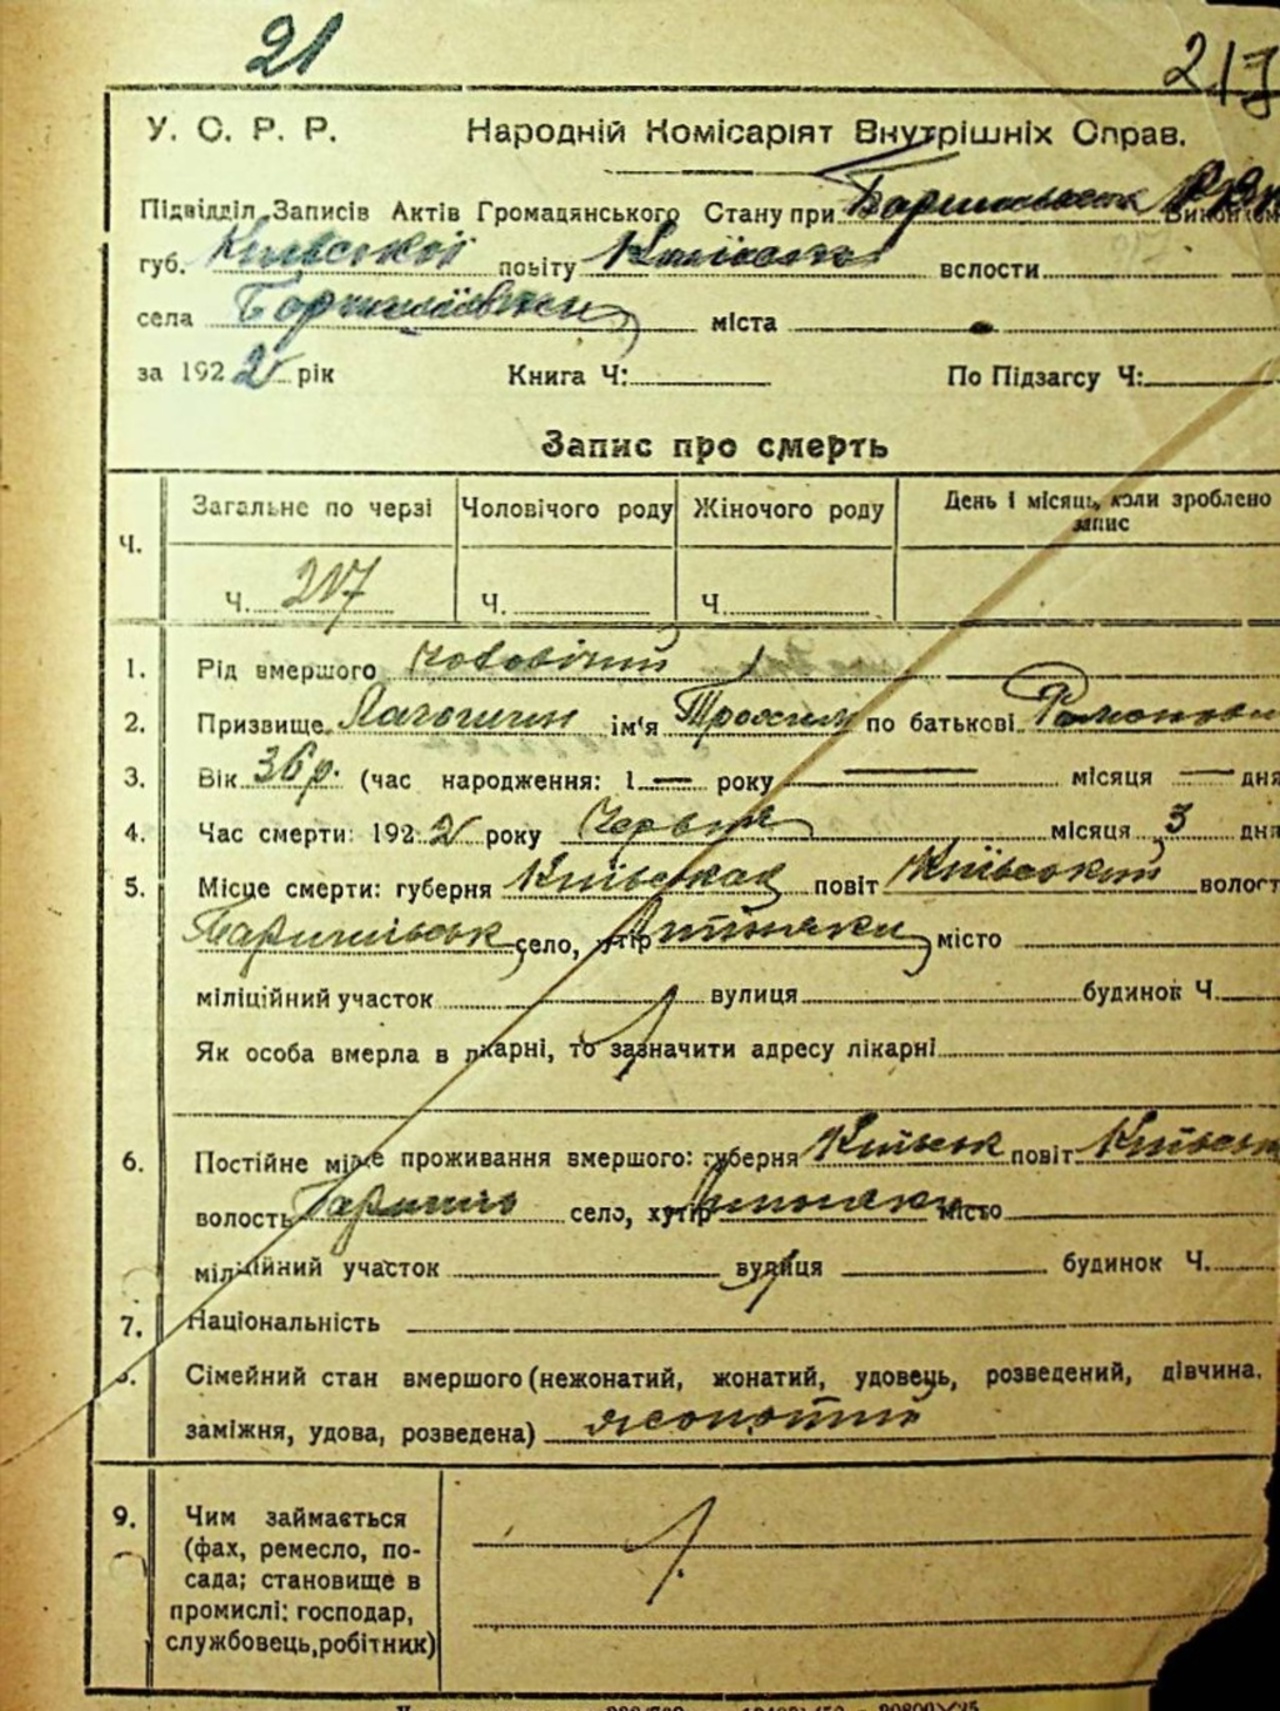 21
217
У. С. Р. Р. Народній Комісаріят Внутрішніх Справ.
Підвідділ Записів Актів Громадянського Стану при Виконком
губ. Київської повіту вслости
села міста
за 1922 рік Книга Ч: По Підзагсу Ч:
Запис про смерть
Ч. Загальне по черзі Чоловічого роду Жіночого роду День і місяць, коли зроблено запис
Ч. 217 Ч. Ч.
1. Рід вмершого чоловічий
2. Призвище ім'я Трохим по батькові
3. Вік 36 р. (час народження: 1 — року — місяця — дня
4. Час смерти: 1922 року Червня місяця 3 дня
5. Місце смерти: губерня Київська повіт Київський волост
село, хутір місто
міліційний участок вулиця будинок Ч.
Як особа вмерла в лікарні, то зазначити адресу лікарні
6. Постійне місце проживання вмершого: губерня Київськ повіт Київськ
волость село, хутір місто
міліційний участок вулиця будинок Ч.
7. Національність
8. Сімейний стан вмершого (нежонатий, жонатий, удовець, розведений, дівчина,
заміжня, удова, розведена) жонатий
9. Чим займається
(фах, ремесло, по-
сада; становище в
промислі: господар,
службовець, робітник)